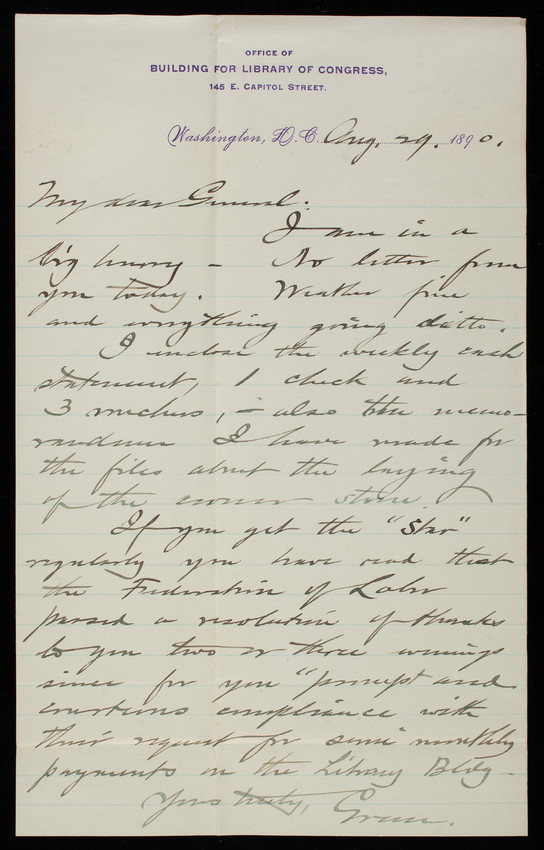 OFFICE OF
BUILDING FOR LIBRARY OF CONGRESS,
145 E. CAPITOL STREET.
Washington, D. C. Aug. 29. 1890.
My dear General:
I am in a
big hurry – No letter from
you today. Weather fine
and everything going ditto.
I inclose the weekly cash
statement, 1 check and
3 vouchers, – also the memo-
randum I have made for
the files about the laying
of the corner stone.
If you get the "Star"
regularly you have read that
the Federation of Labor
passed a resolution of thanks
to you two or three evenings
since for you "prompt and
courteous compliance with
their request for semi monthly
payments on the Library Bldg –
Yours truly, Green.